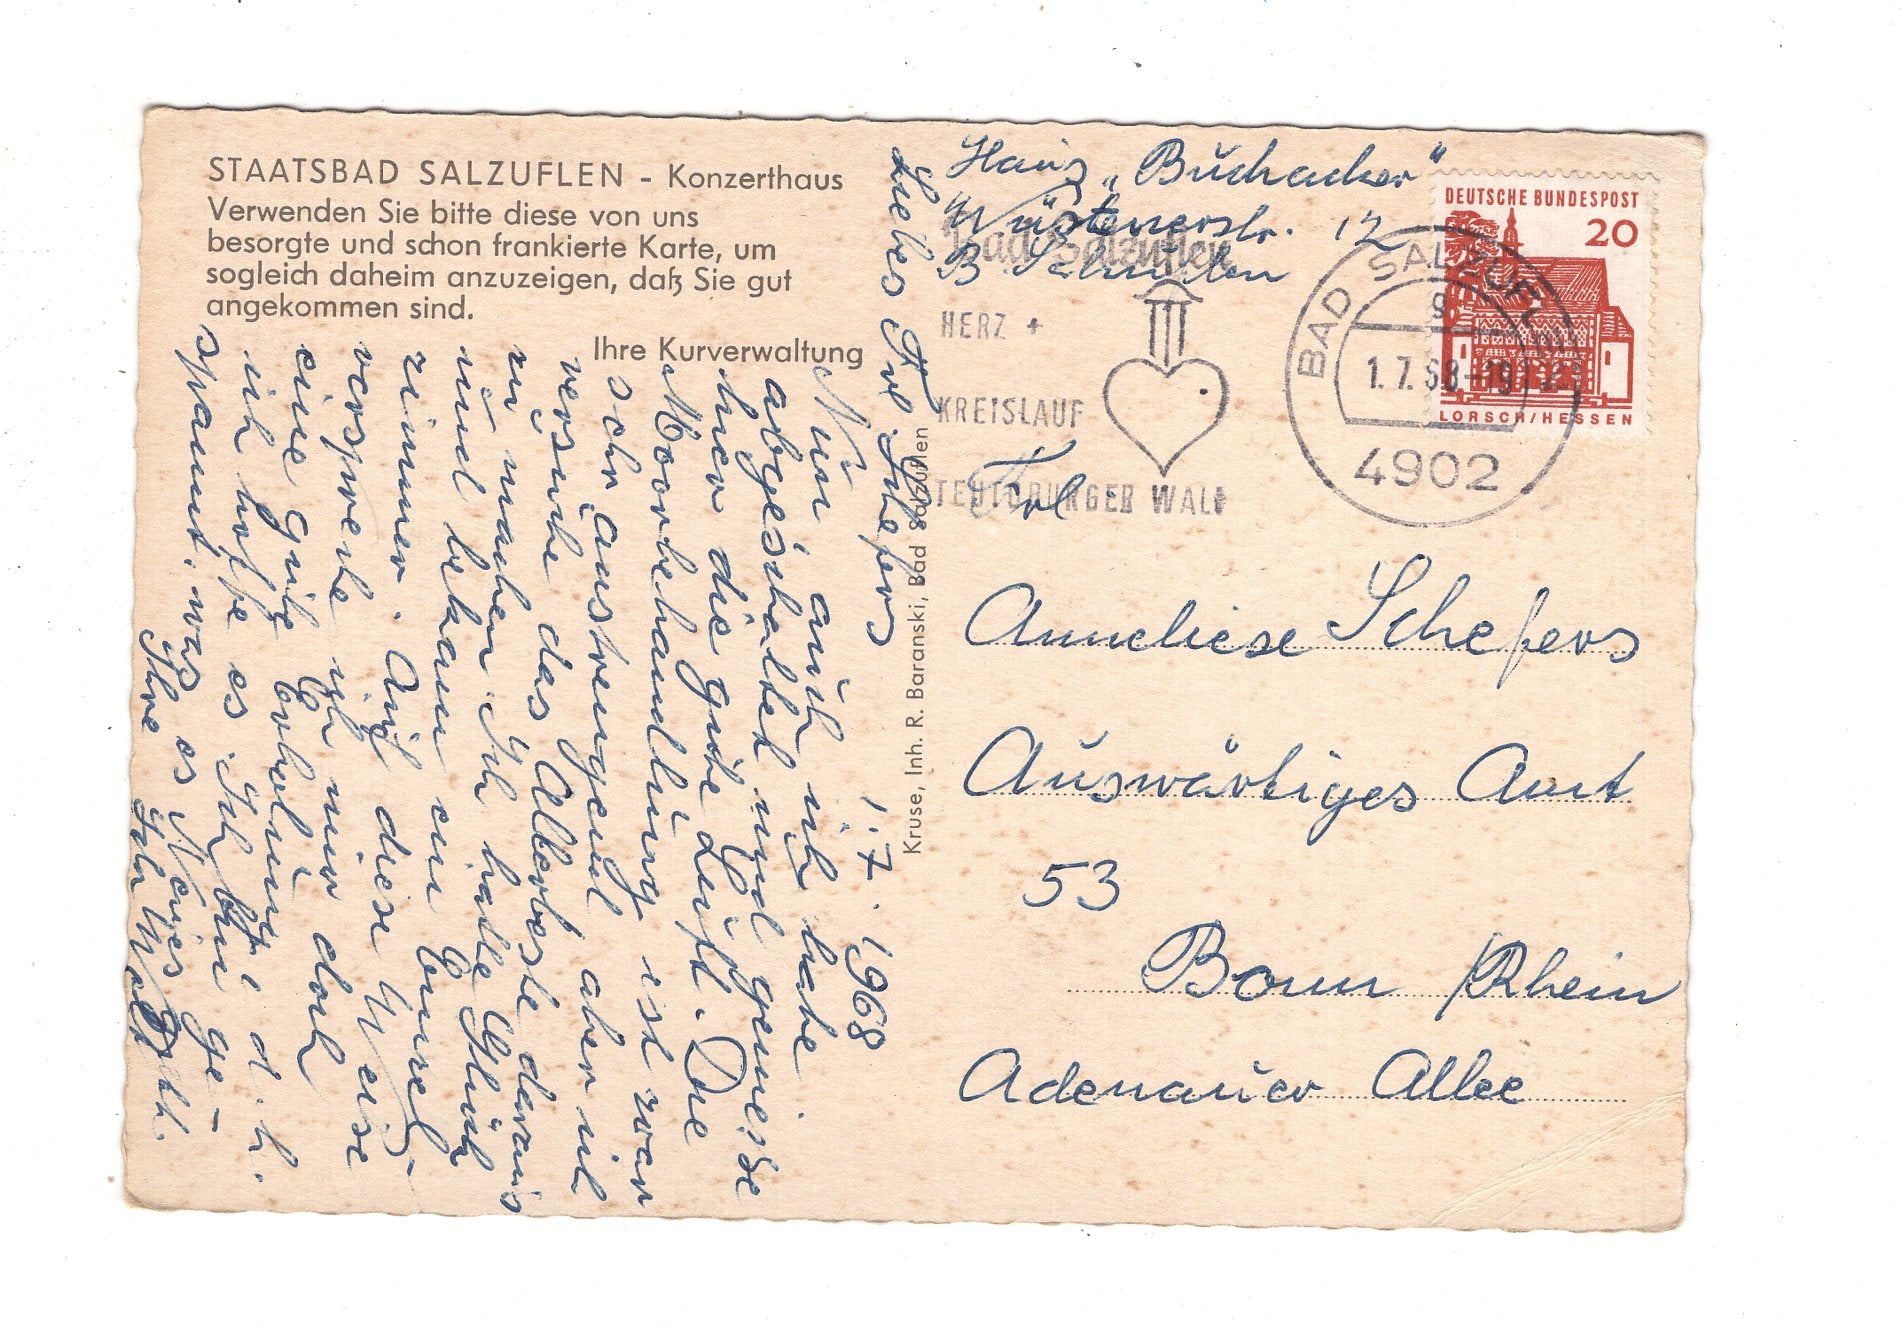 STAATSBAD SALZUFLEN - Konzerthaus
Verwenden Sie bitte diese von uns
besorgte und schon frankierte Karte, um
sogleich daheim anzuzeigen, daß Sie gut
angekommen sind.
Ihre Kurverwaltung
Liebes Frl. Schefers
1.7.1968
Nun auch ich habe
abgeschaltet und geniesse
hier die gute Luft. Die
Moorbehandlung ist zwar
sehr anstrengend aber ich
versuche das Allerbeste daraus
zu machen. Ich hatte Glück
und bekam ein Einzel-
zimmer. Auf diese Weise
verspreche ich mir doch
eine gute Erholung d.h.
ich hoffe es. Ich bin ge-
spannt was es Neues
Ihre
Kruse, Inh. R. Baranski, Bad Salzuflen
Haus "Buchacker"
Wüstenerstr. 12
B. Salzuflen
Bad Salzuflen
HERZ +
KREISLAUF
TEUTOBURGER WALD
BAD SALZUFLEN
g
1.7.68-19
4902
DEUTSCHE BUNDESPOST
20
LORSCH/HESSEN
Frl.
Anneliese Schefers
Auswärtiges Amt
53
Bonn /Rhein
Adenauer Allee